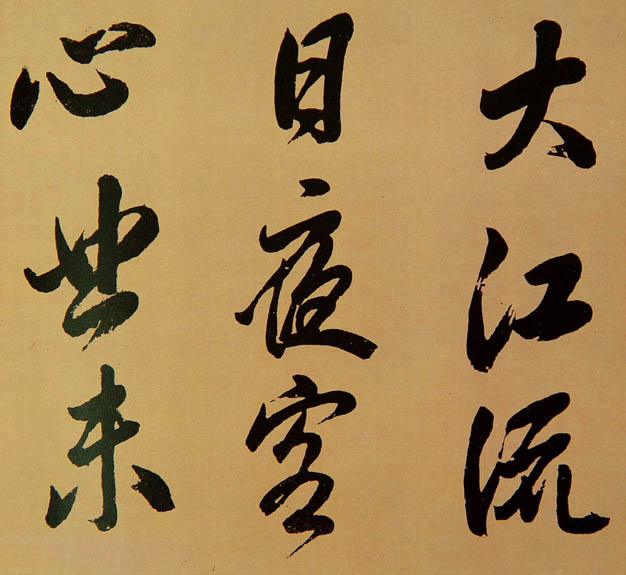 大江流
日夜客
心悲未